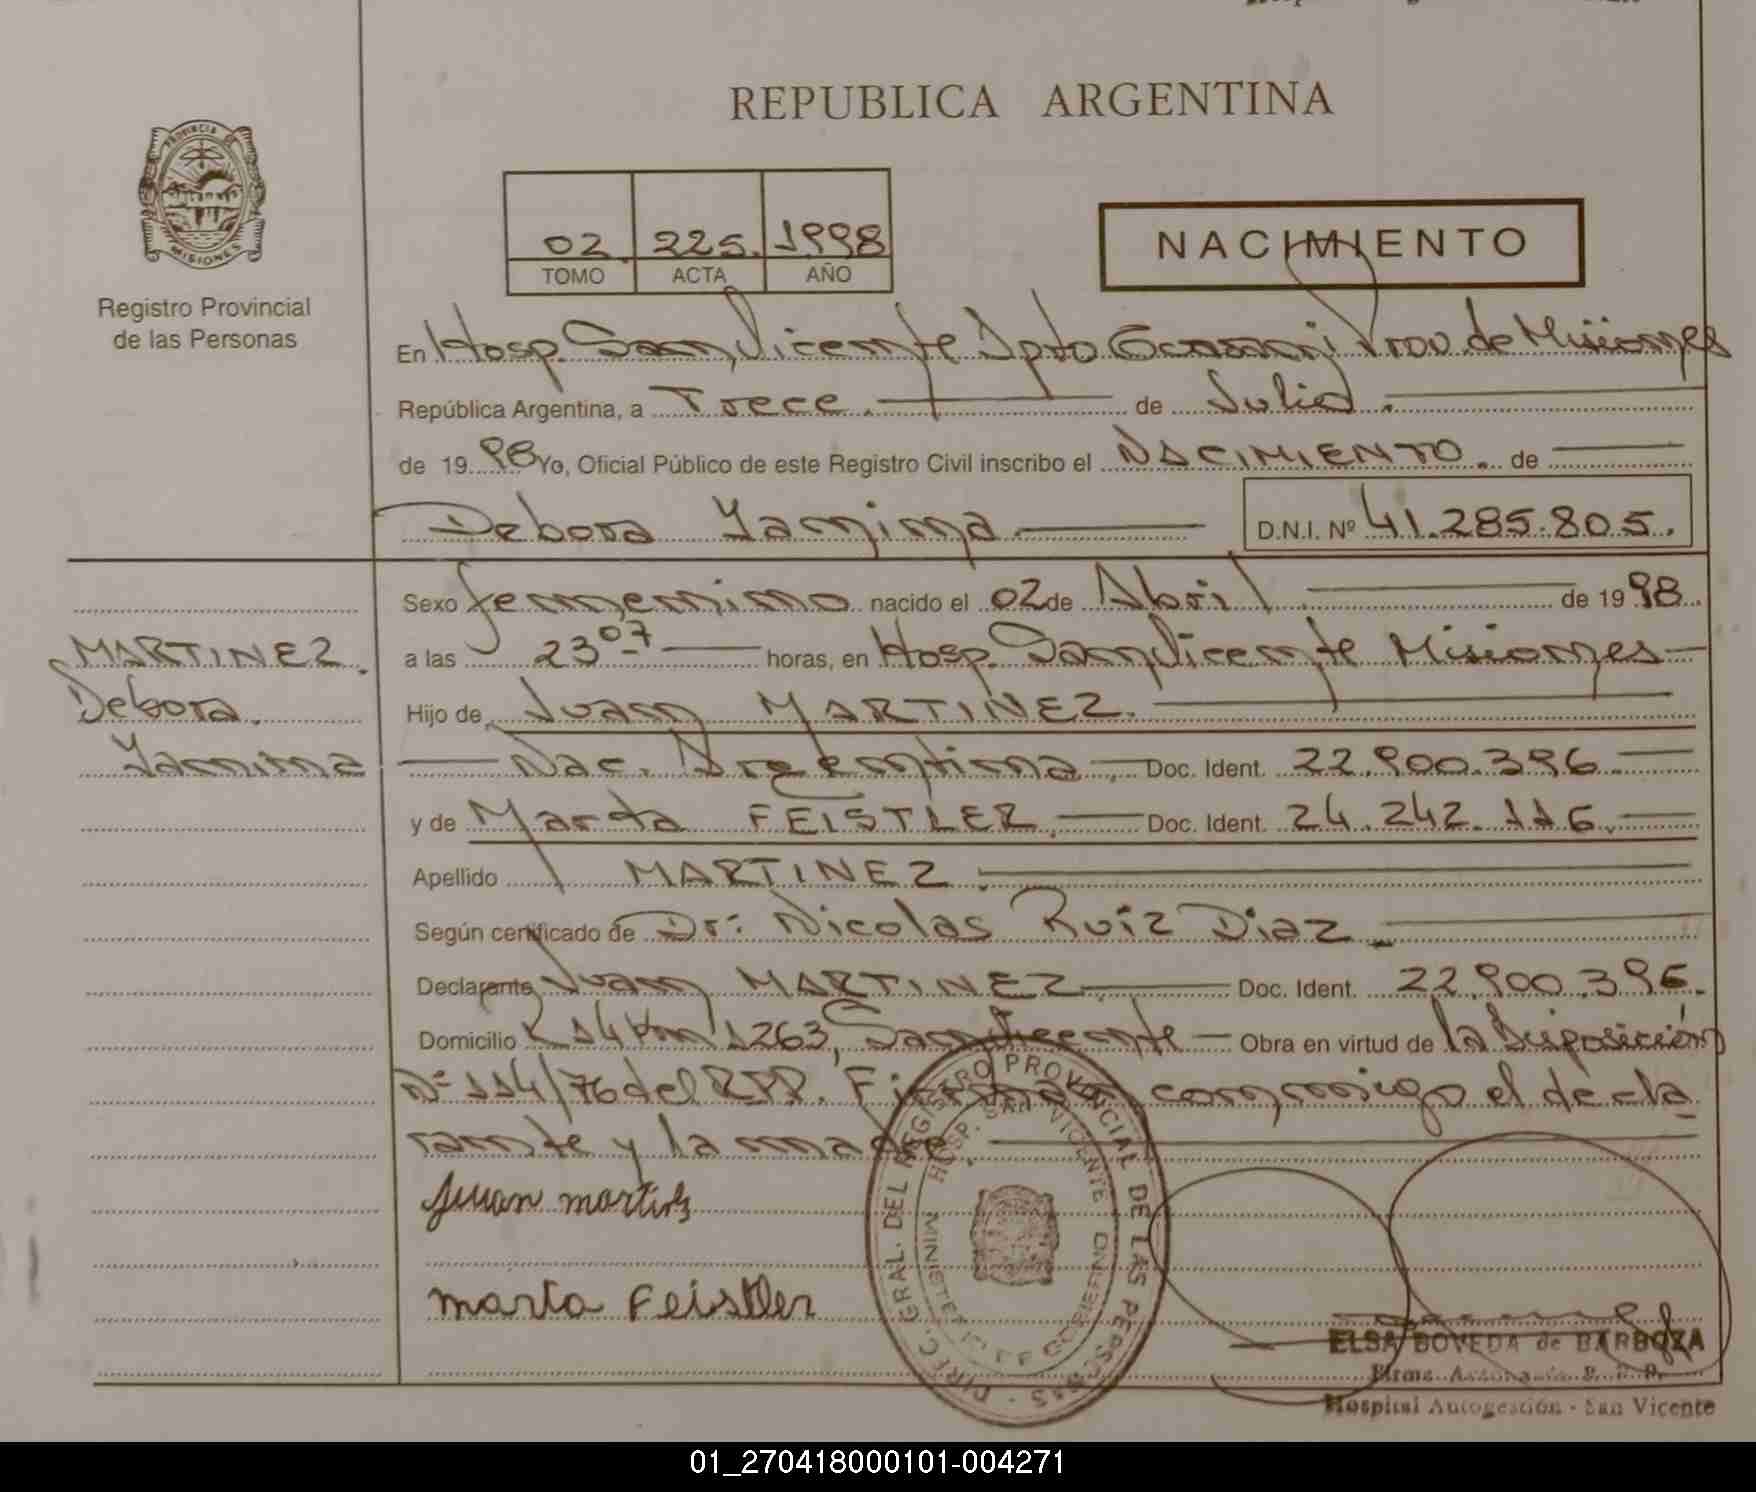 REPUBLICA ARGENTINA
PROVINCIA DE
MISIONES
Registro Provincial
de las Personas
02. 225. 1998
TOMO ACTA AÑO
NACIMIENTO
En Hosp. San Vicente Dpto Guarani Prov. de Misiones
República Argentina, a Trece. de Julio.
de 19 98 Yo, Oficial Público de este Registro Civil inscribo el NACIMIENTO. de
Debora Yamima
D.N.I. Nº 41.285.805.
Sexo femenino nacido el 02 de Abril de 19 98
MARTINEZ.
Debora.
Yamima
a las 23 07 horas, en Hosp. San Vicente Misiones
Hijo de Juan MARTINEZ.
Nac. Argentina Doc. Ident. 22.900.396
y de Marta FEISTLER. Doc. Ident. 24.242.116.
Apellido MARTINEZ.
Según certificado de Dr: Nicolas Ruiz Diaz
Declarante Juan MARTINEZ Doc. Ident. 22.900.396.
Domicilio R 14 Km 1263, San Vicente Obra en virtud de la Disposición
Nº 114/76 del RPP. Firman conmigo el decla
rante y la madre.
Juan
marta Feistler
DIREC. GRAL. DEL REGISTRO PROVINCIAL DE LAS PERSONAS
HOSP. SAN VICENTE
MINISTERIO DE GOBIERNO
ELSA BOVEDA de BARBOZA
Firma R. P. P.
Hospital Autogestión - San Vicente
01_270418000101-004271